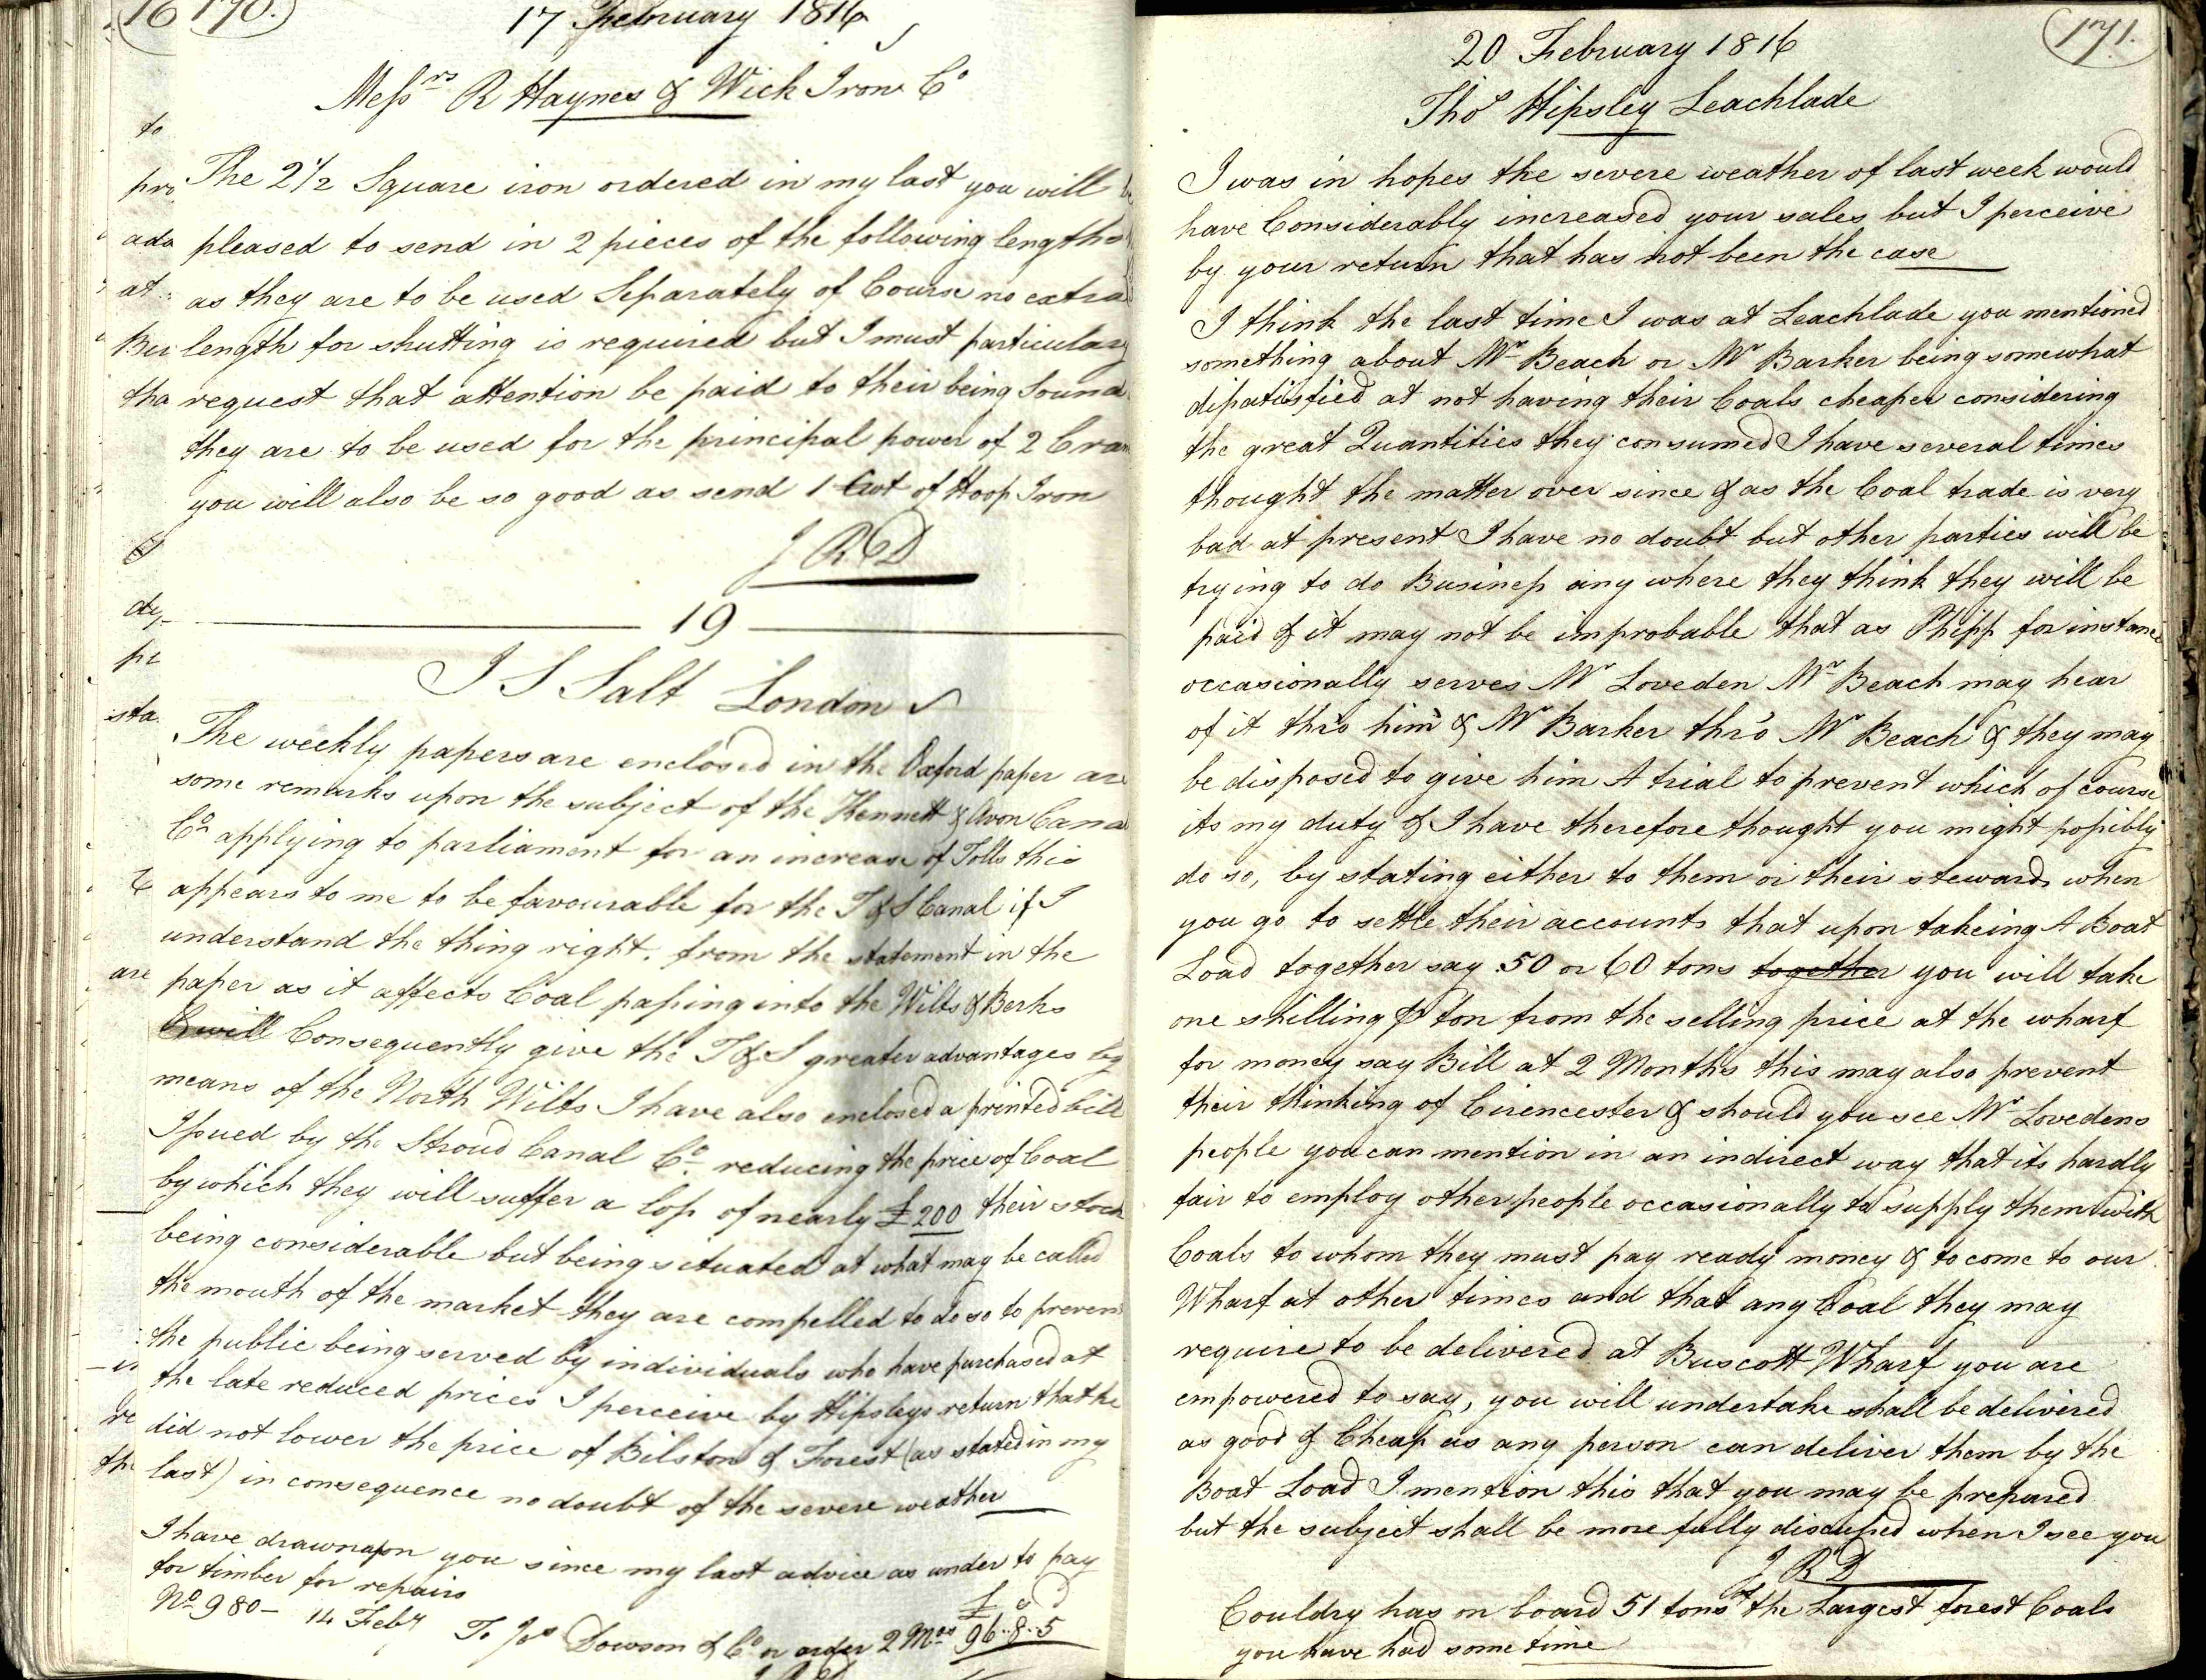 16
170.
17 February 1816
Messrs R Haynes & Wick Iron Co
The 2 1/2 Square iron ordered in my last you will be
pleased to send in 2 pieces of the following lengths
as they are to be used Separately of Course no extra
length for shutting is required but I must particular
request that attention be paid to their being Sound
they are to be used for the principal power of 2 Cran
you will also be so good as send 1 Cwt of Hoop Iron
J R D
19
I S Salt London
The weekly papers are enclosed in the Oxford paper are
some remarks upon the subject of the Kennett & Avon Canal
Co applying to parliament for an increase of Tolls this
appears to me to be favourable for the T & S Canal if I
understand the thing right. from the statement in the
paper as it affects Coal passing into the Wilts & Berks
& will Consequently give the T & S greater advantages by
means of the North Wilts I have also enclosed a printed bill
Issued by the Stroud Canal Co reducing the price of Coal
by which they will suffer a loss of nearly £200 their stock
being considerable but being situated at what may be called
the mouth of the market they are compelled to do so to preven
the public being served by individuals who have purchased at
the late reduced prices I perceive by Hipsleys return that he
did not lower the price of Bilston & Forest (as stated in my
last) in consequence no doubt of the severe weather
I have drawn upon you since my last advice as under to pay
for timber for repairs
£ s d
No 980 - 14 Feby To Jos Dowson & Co or order 2 Mos 96..8..5
to
pro
ada
at
Bu
tha
dy
pe
sta
are
re
th
171.
20 February 1816
Thos Hipsley Leachlade
I was in hopes the severe weather of last week would
have Considerably increased your sales but I perceive
by your return that has not been the case
I think the last time I was at Leachlade you mentioned
something about Mr Beach or Mr Barker being somewhat
dissatisfied at not having their Coals cheaper considering
the great Quantities they consumed I have several times
thought the matter over since & as the Coal trade is very
bad at present I have no doubt but other parties will be
trying to do Business any where they think they will be
paid & it may not be improbable that as Phipp for instance
occasionally serves Mr Loveden Mr Beach may hear
of it thro him & Mr Barker thro Mr Beach & they may
be disposed to give him A trial to prevent which of course
its my duty & I have therefore thought you might possibly
do so, by stating either to them or their stewards when
you go to settle their accounts that upon takeing A Boat
Load together say 50 or 60 tons together you will take
one shilling ⅌ ton from the selling price at the wharf
for money say Bill at 2 Months this may also prevent
their thinking of Cirencester & should you see Mr Lovedens
people you can mention in an indirect way that its hardly
fair to employ other people occasionally to supply them with
Coals to whom they must pay ready money & to come to our
Wharf at other times and that any Coal they may
require to be delivered at Buscott Wharf you are
empowered to say, you will undertake shall be delivered
as good & Cheap as any person can deliver them by the
Boat Load I mention this that you may be prepared
but the subject shall be more fully discussed when I see you
J R D
Couldry has on board 51 tons of the Largest forest Coals
you have had some time